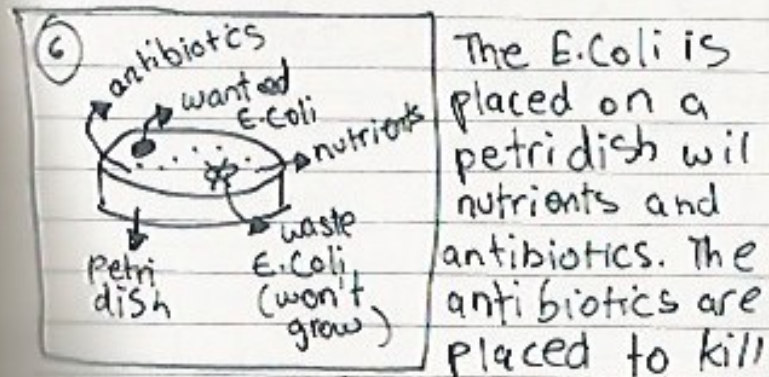 6
antibiotics
wanted
E.Coli
nutrients
Petri
dish
waste
E.Coli
(won't
grow)
The E.Coli is
placed on a
petri dish wil
nutrients and
antibiotics. The
antibiotics are
placed to kill